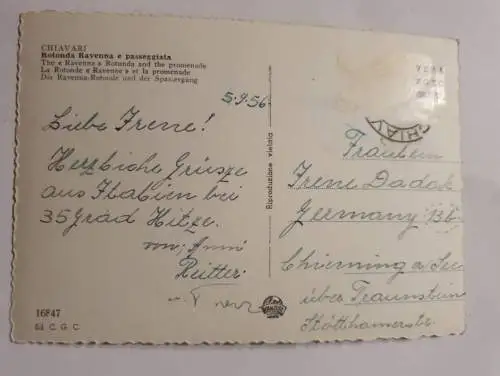 CHIAVARI
Rotonda Ravenna e passeggiata
The « Ravenna » Rotunda and the promenade
La Rotonde « Ravenne » et la promenade
Die Ravenna-Rotonde und der Spaziergang
5.9.56.
Liebe Irene!
Herzliche Grüsze
aus Italien bei
35 Grad Hitze.
von: Anni
Reitter.
Riproduzione vietata
CHIAV
Fräulein
Irene Dadak
Germany 13b
Chieming a/See
über Traunstein
Stötthamerstr.
16847
Ed. C. G. C.